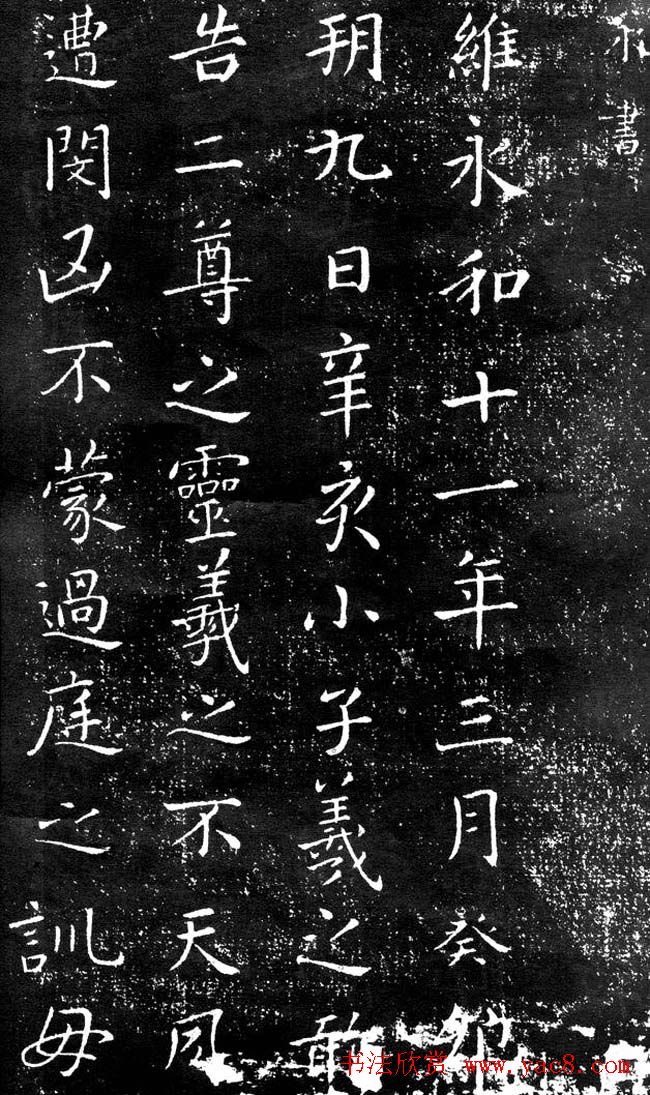 書
維永和十一年三月癸卯
朔九日辛亥小子羲之敢
告二尊之靈羲之不天夙
遭閔凶不蒙過庭之訓母
书法欣赏 www.yac8.com